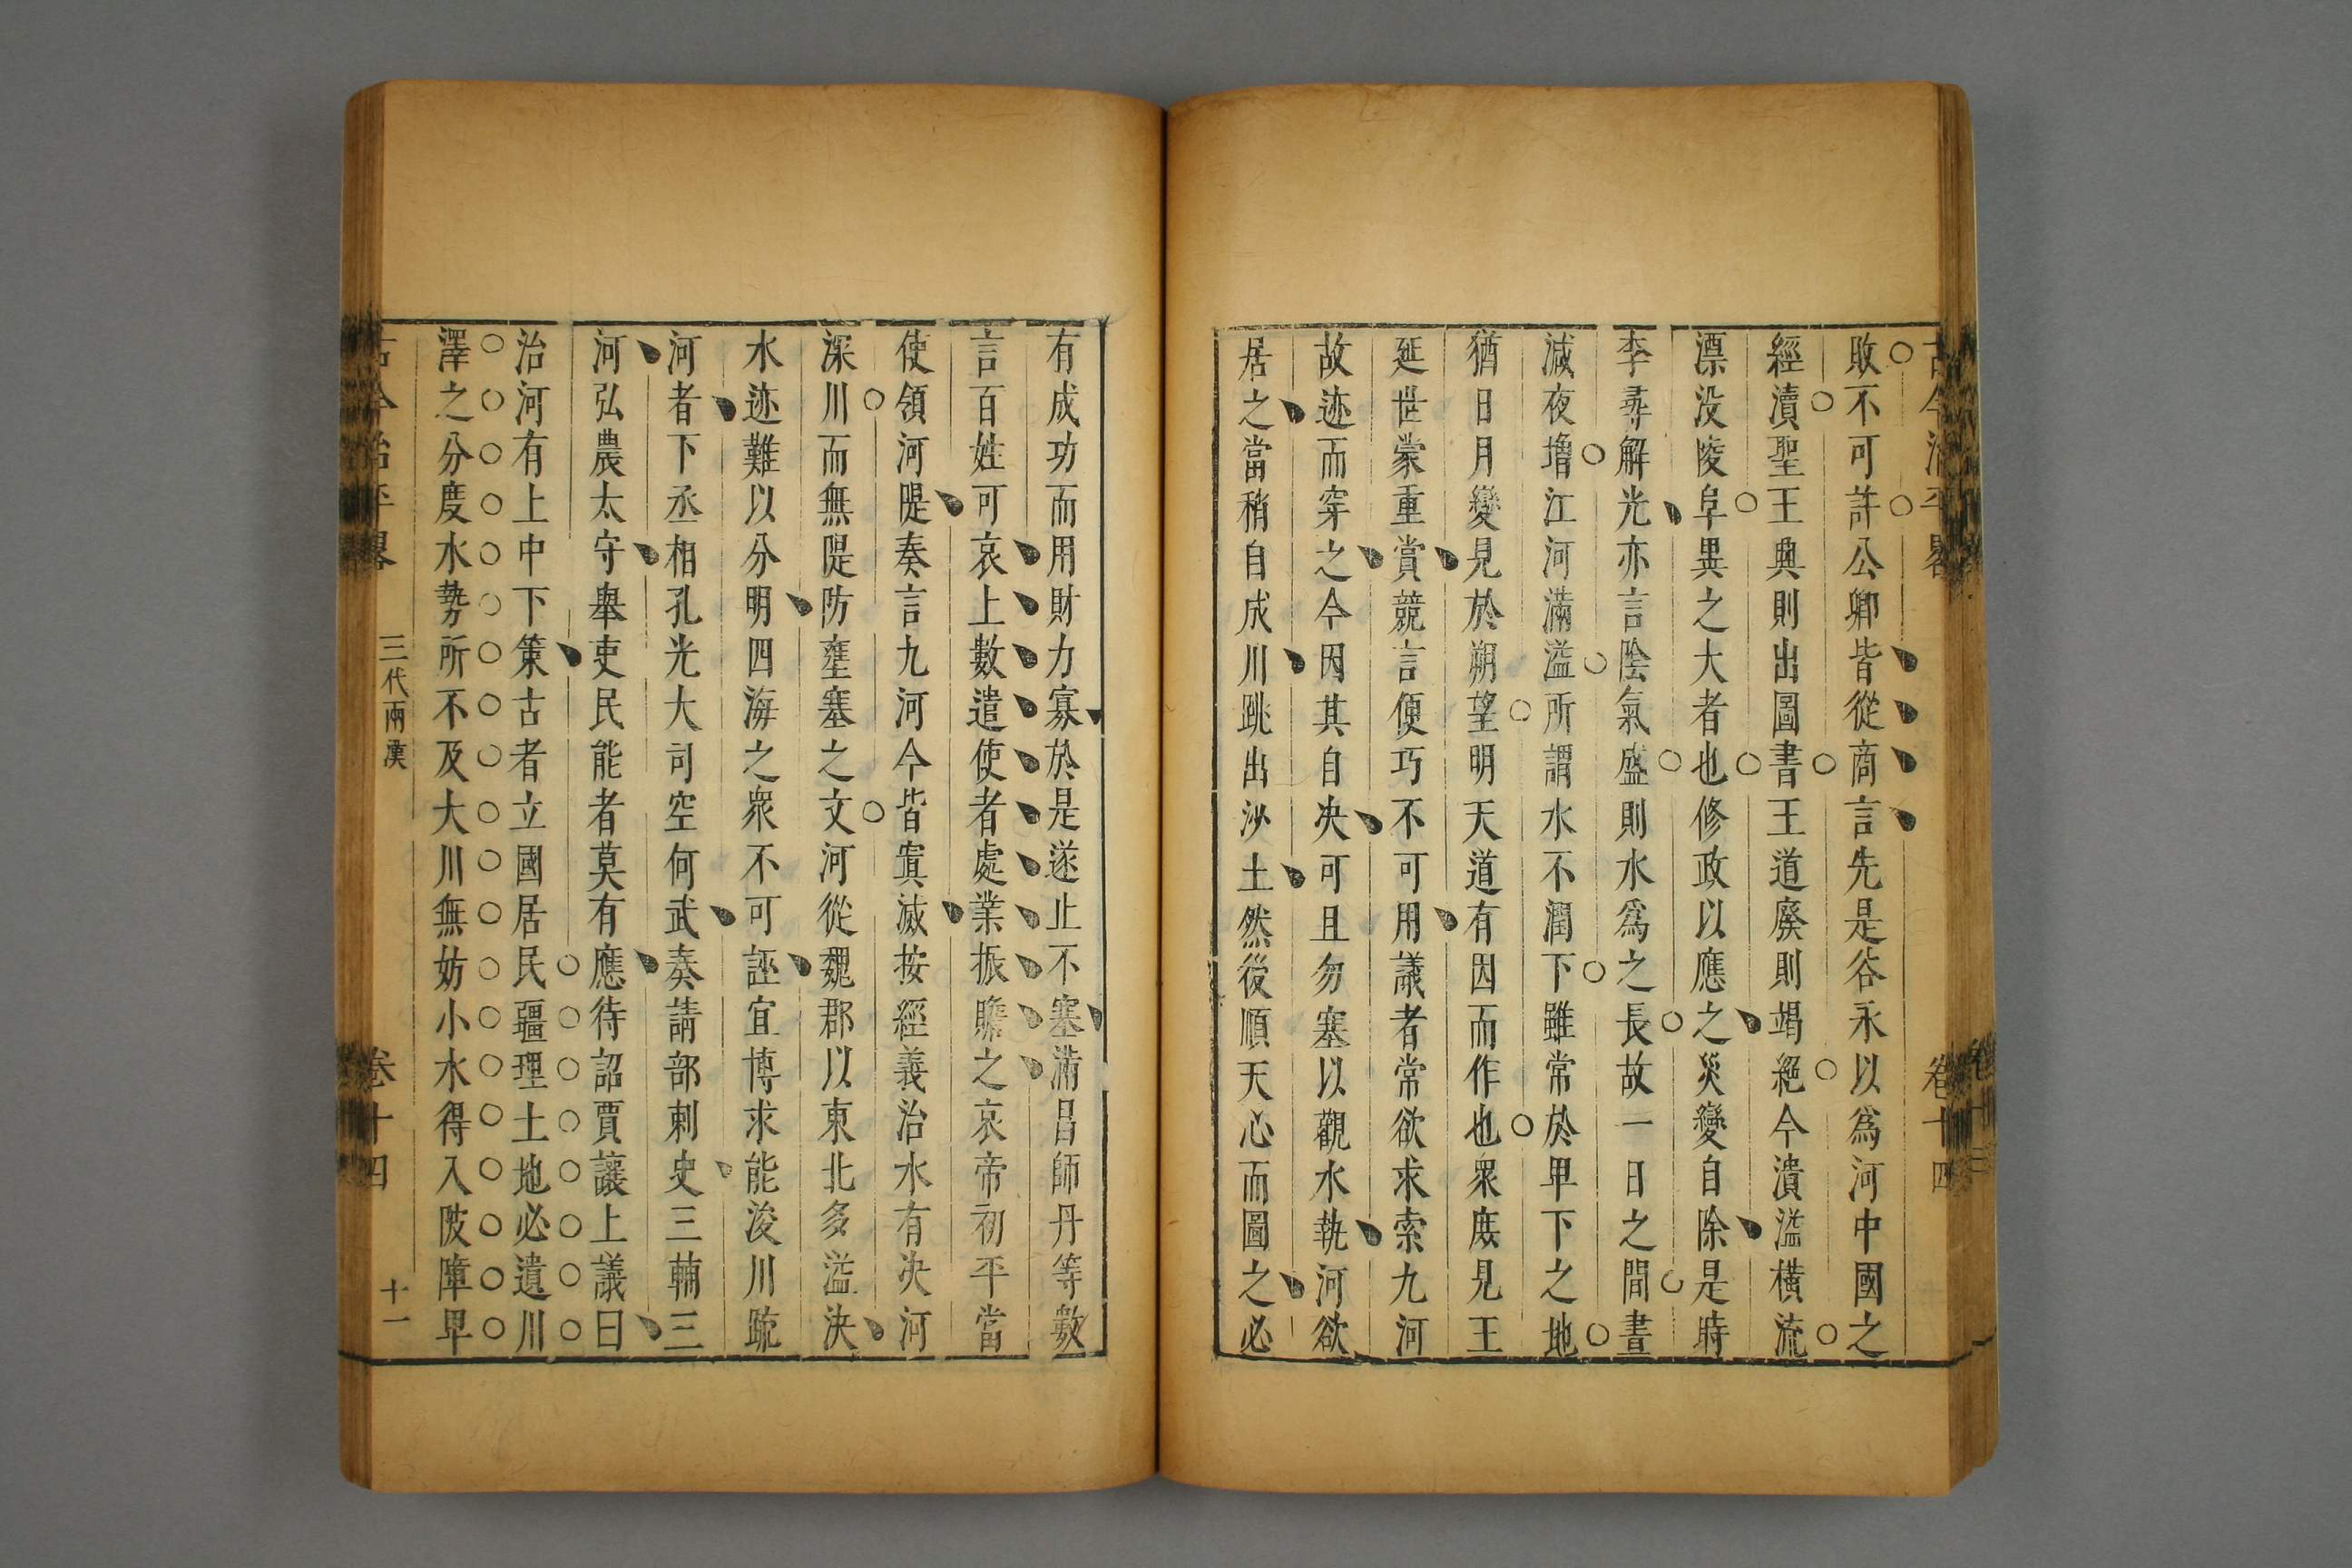 敗不可許公卿皆從商言先是谷永以爲河中國之
經瀆聖王興則出圖書王道廢則竭絕今潰溢橫流
漂没陵阜異之大者也修政以應之災變自除是時
李尋解光亦言陰氣盛則水爲之長故一日之間晝
減夜增江河滿溢所謂水不潤下雖常於𤰞下之地
猶日月變見於朔望明天道有因而作也衆庶見王
延世蒙重賞競言便巧不可用議者常欲求索九河
故迹而穿之今因其自决可且勿塞以觀水執河欲
居之當稍自成川跳出沙土然後順天心而圖之必
有成功而用財力寡於是遂止不塞滿昌師丹等數
言百姓可哀上數遣使者處業振贍之哀帝初平當
使領河隄奏言九河今皆窴滅按經義治水有决河
深川而無隄防壅塞之文河從魏郡以東北多溢决
水迹難以分明四海之衆不可誣宜博求能浚川疏
河者下丞相孔光大司空何武奏請部刺史三輔三
河弘農太守舉吏民能者莫有應待詔賈讓上議曰
治河有上中下策古者立國居民疆理土地必遺川
澤之分度水勢所不及大川無妨小水得入陂障𤰞
古今治平畧
三代兩漢
卷十四
十一